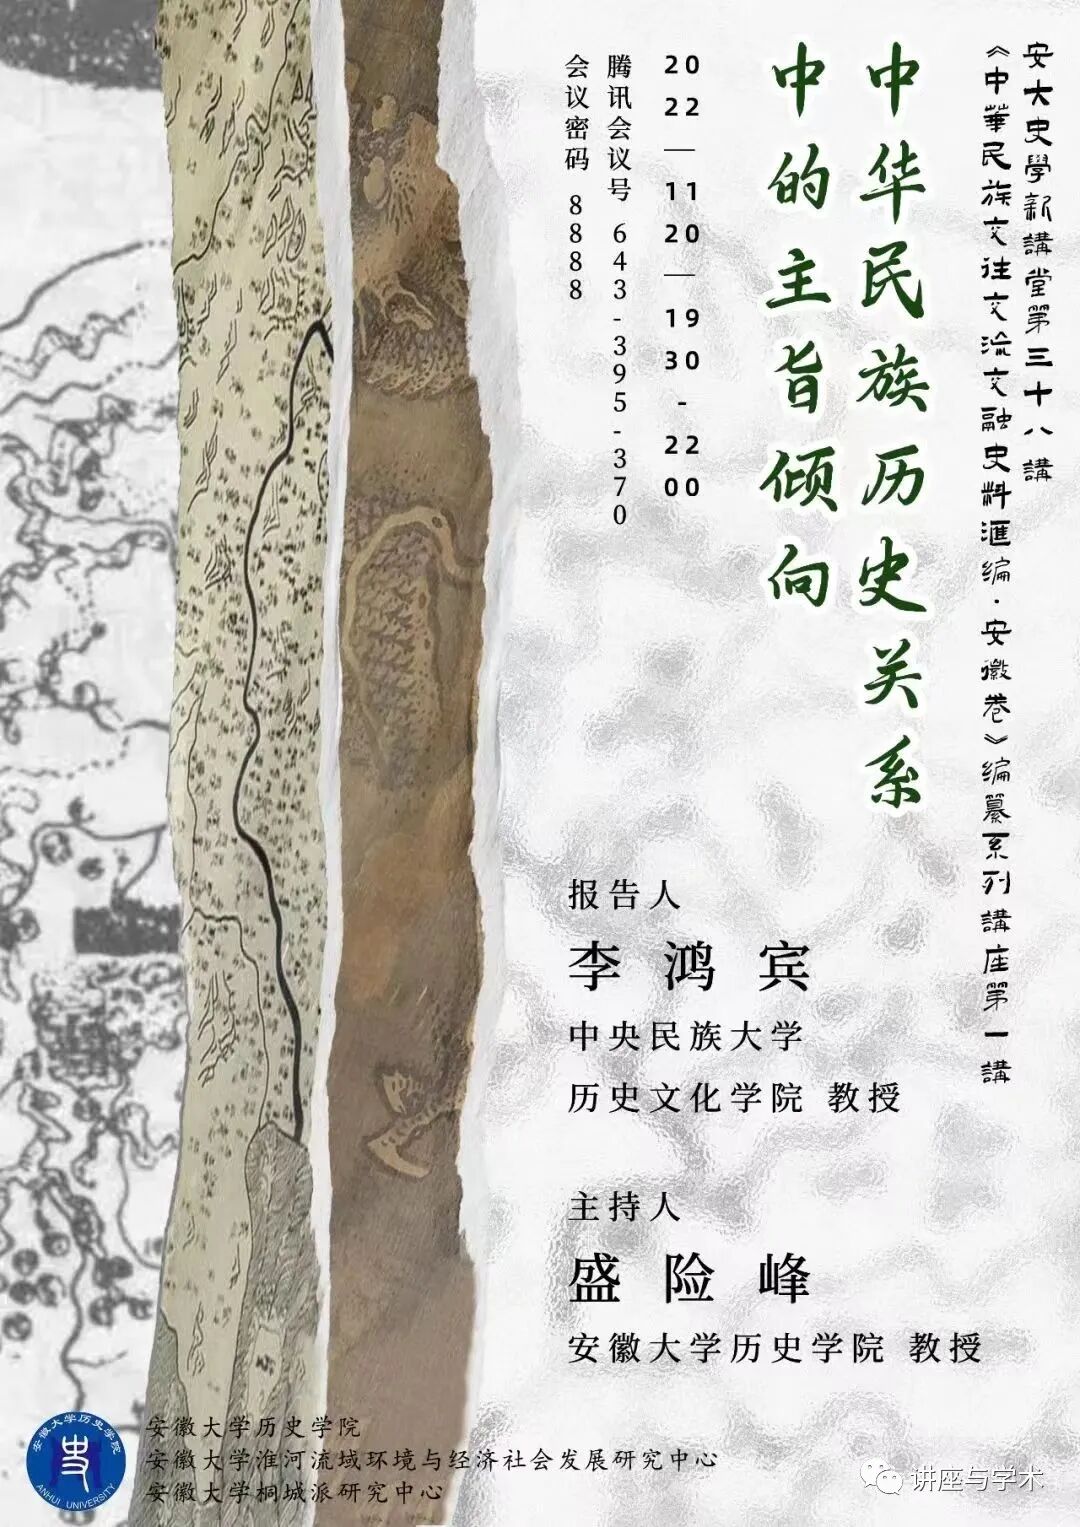 安大史學新講堂第三十八講
《中華民族交往交流交融史料滙編·安徽卷》編纂系列講座第一講
中华民族历史关系
中的主旨倾向
20
22
—
11
20
—
19
30
-
22
00
腾讯会议号 643-395-370
会议密码 8888
报告人
李鸿宾
中央民族大学
历史文化学院 教授
主持人
盛险峰
安徽大学历史学院 教授
安徽大学历史学院
ANHUI UNIVERSITY
安徽大学历史学院
安徽大学淮河流域环境与经济社会发展研究中心
安徽大学桐城派研究中心
讲座与学术